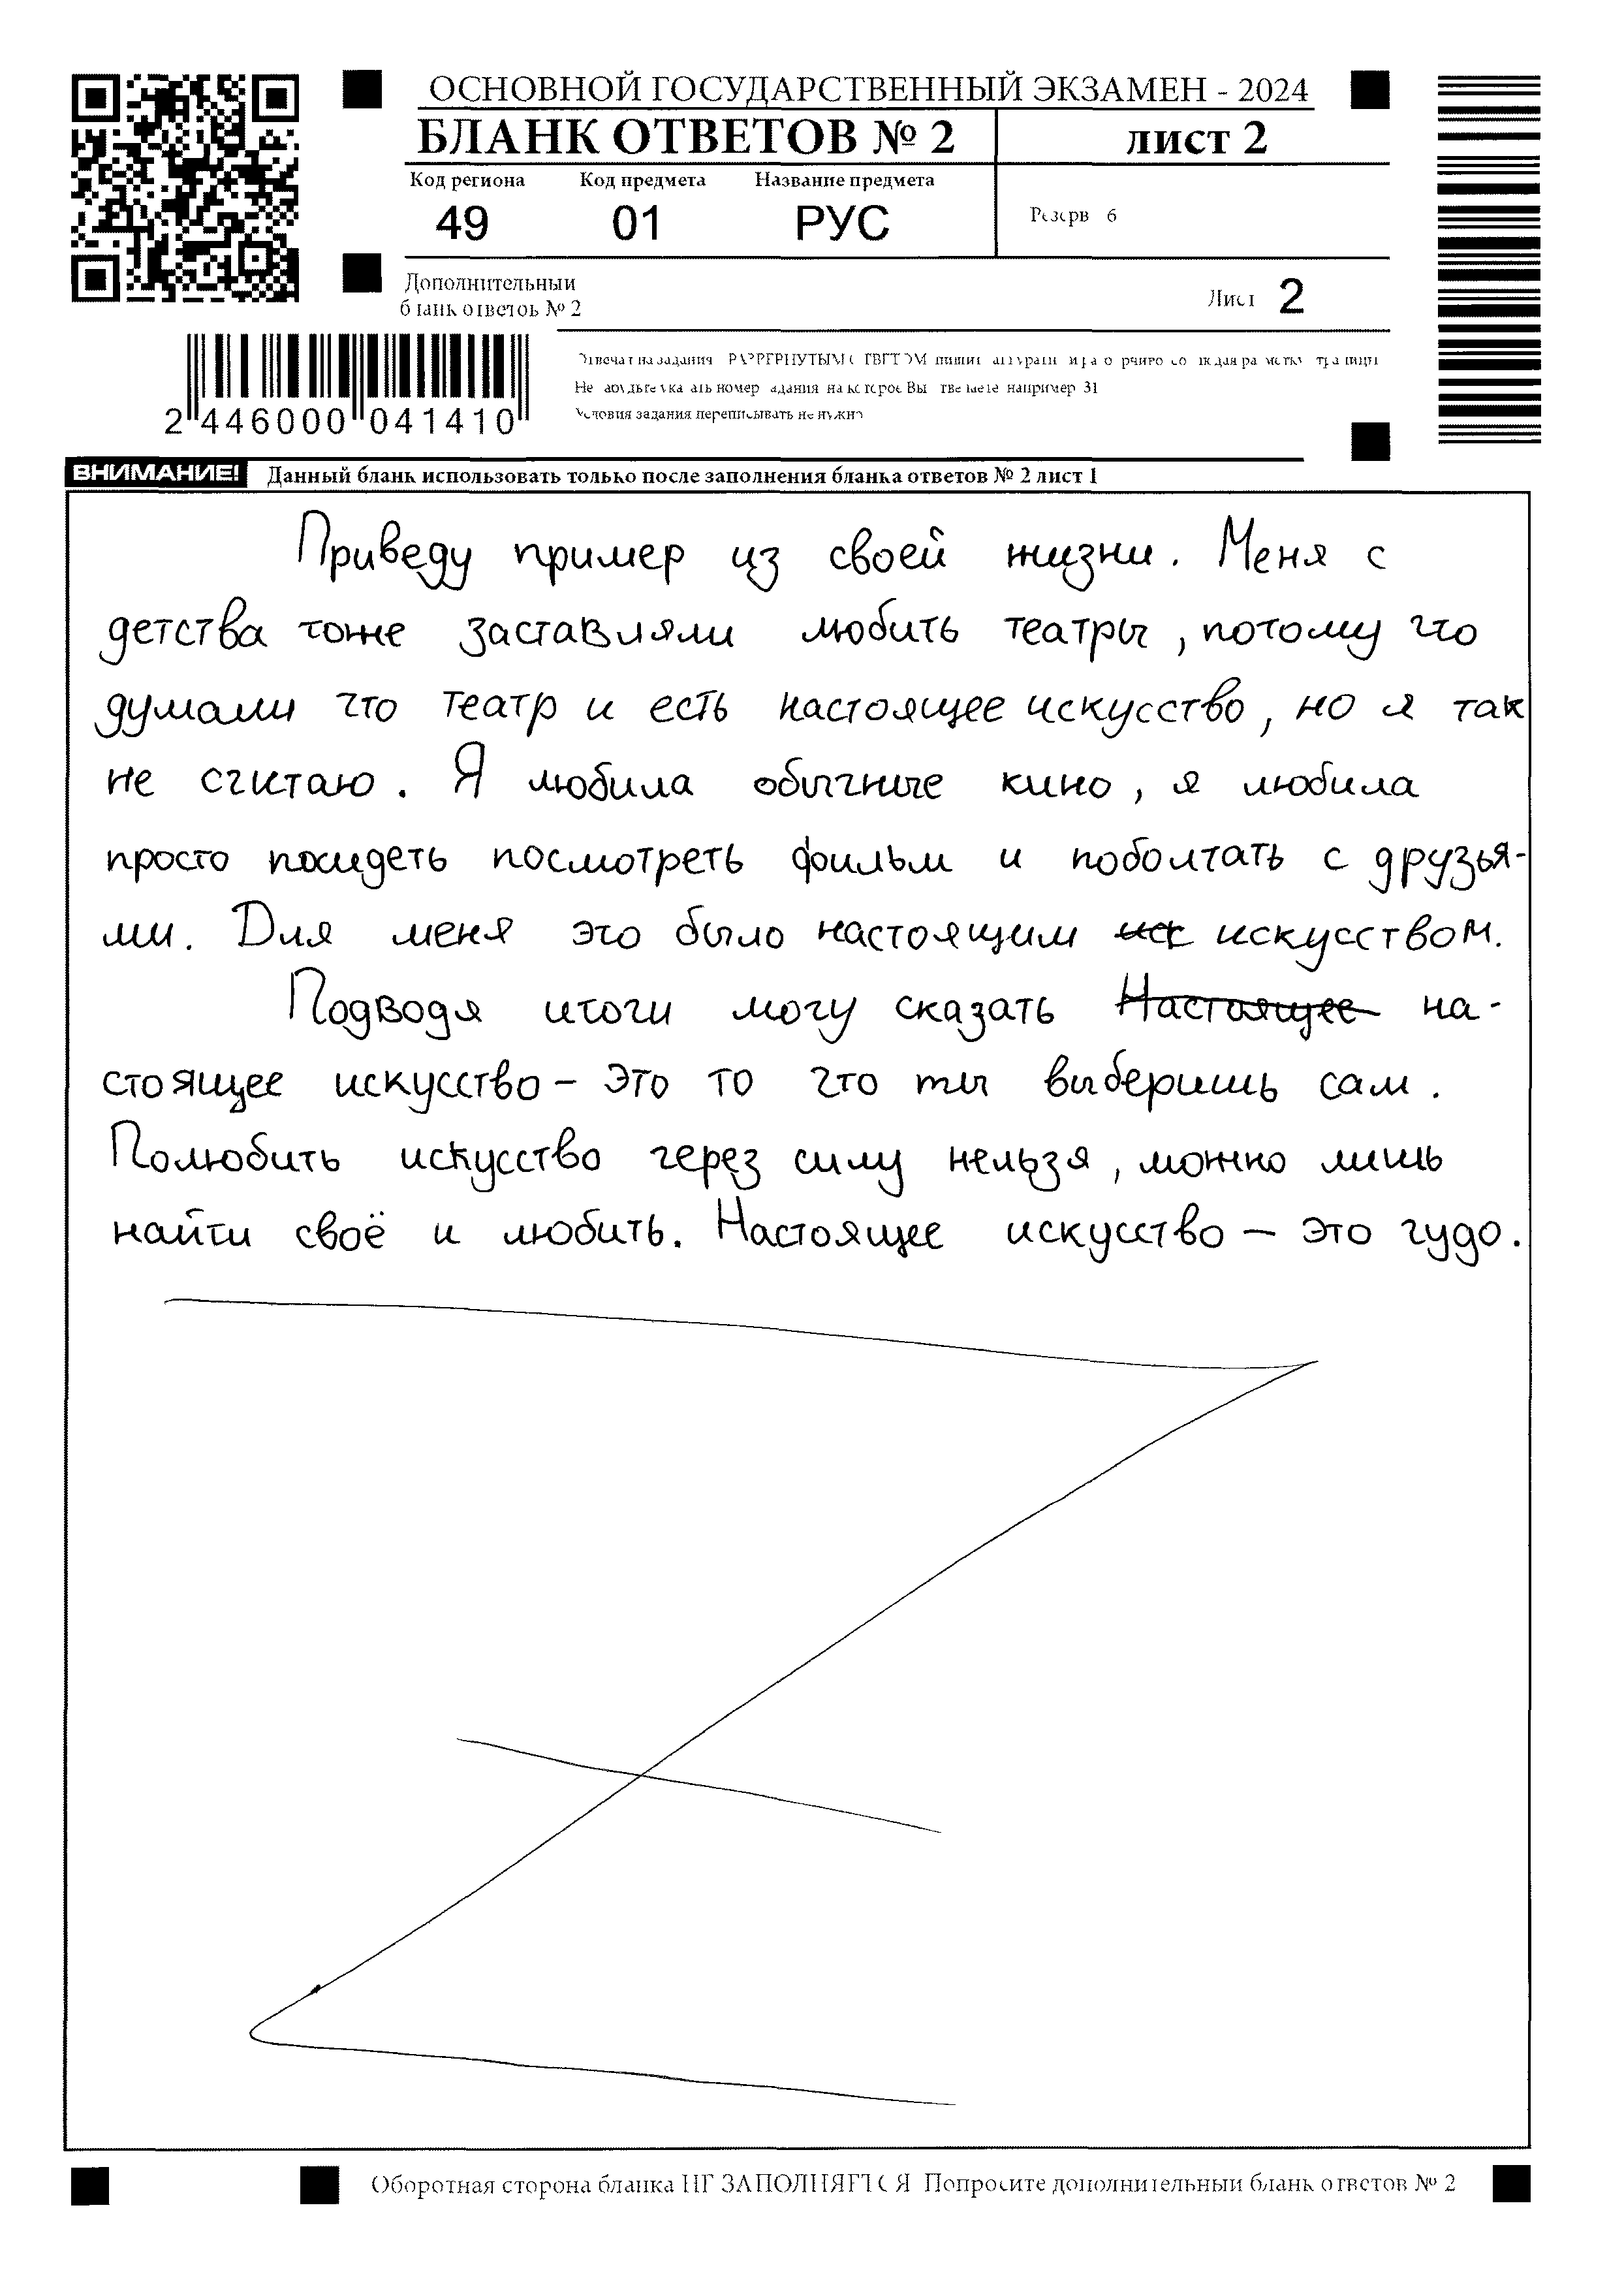 ОСНОВНОЙ ГОСУДАРСТВЕННЫЙ ЭКЗАМЕН - 2024
БЛАНК ОТВЕТОВ № 2 лист 2
Код региона Код предмета Название предмета
49 01 РУС
Резерв 6
Дополнительный
бланк ответов № 2
Лист 2
2 446000 041410
Условия задания переписывать не нужно
ВНИМАНИЕ! Данный бланк использовать только после заполнения бланка ответов № 2 лист 1
Приведу пример из своей жизни. Меня с
детства тоже заставляли любить театры, потому что
думали что театр и есть настоящее искусство, но я так
не считаю. Я любила обычные кино, я любила
просто посидеть посмотреть фильм и поболтать с друзья-
ми. Для меня это было настоящим иск искусством.
Подводя итоги могу сказать Настоящее на-
стоящее искусство - это то что ты выберишь сам.
Полюбить искусство через силу нельзя, можно лишь
найти своё и любить. Настоящее искусство - это чудо.
Оборотная сторона бланка НЕ ЗАПОЛНЯЕТСЯ Попросите дополнительный бланк ответов № 2